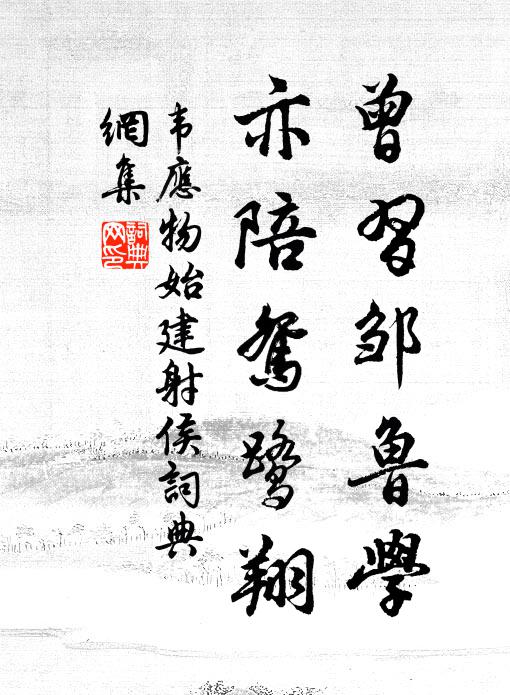 曾習邹魯學
亦陪鴛鷺翔
韦應物始建射侯詞典
網集
詞典网印